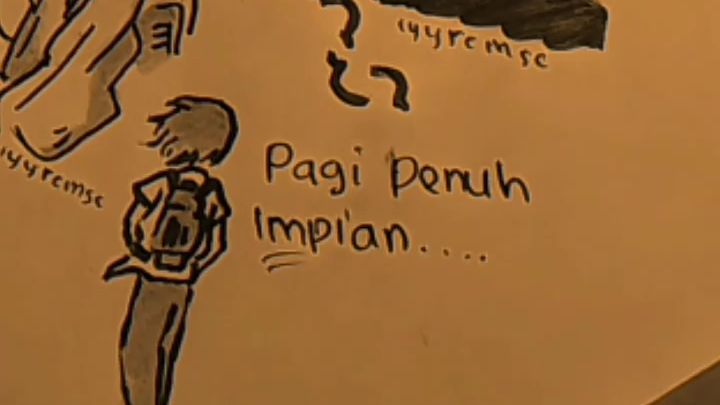 iyyremsc
Pagi Penuh
iyyremsc
Impian.....